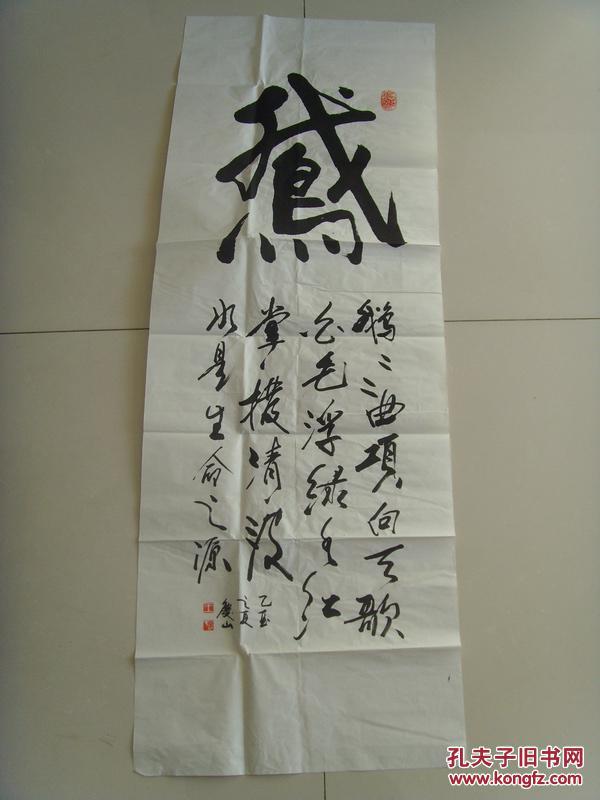 鵞
鵝々々曲項向天歌
白毛浮綠水红
掌撥清波
水是生命之源
乙酉
之夏
慶山
孔夫子旧书网
www.kongfz.com